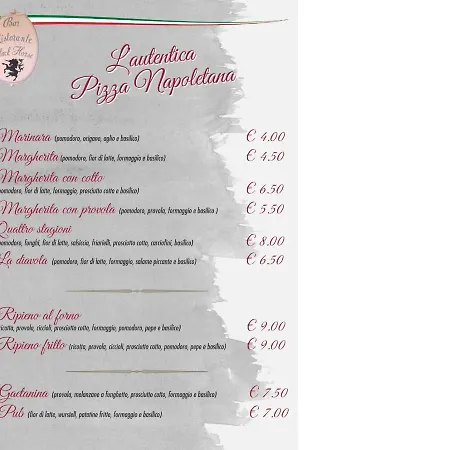 Bar
Ristorante
Black Horse
L'autentica
Pizza Napoletana
Marinara (pomodoro, origano, aglio e basilico) € 4.00
Margherita (pomodoro, fior di latte, formaggio e basilico) € 4,50
Margherita con cotto
pomodoro, fior di latte, formaggio, prosciutto cotto e basilico) € 6.50
Margherita con provola (pomodoro, provola, formaggio e basilico ) € 5,50
Quattro stagioni
pomodoro, funghi, fior di latte, salsiccia, friarielli, prosciutto cotto, carciofini, basilico) € 8.00
La diavola (pomodoro, fior di latte, formaggio, salame piccante e basilico) € 6.50
Ripieno al forno
ricotta, provola, ciccioli, prosciutto cotto, formaggio, pomodoro, pepe e basilico) € 9.00
Ripieno fritto (ricotta, provola, ciccioli, prosciutto cotto, pomodoro, pepe e basilico) € 9.00
Gaetanina (provola, melanzane a funghetto, prosciutto cotto, formaggio e basilico) € 7.50
Pub (fior di latte, wurstell, patatine fritte, formaggio e basilico) € 7.00